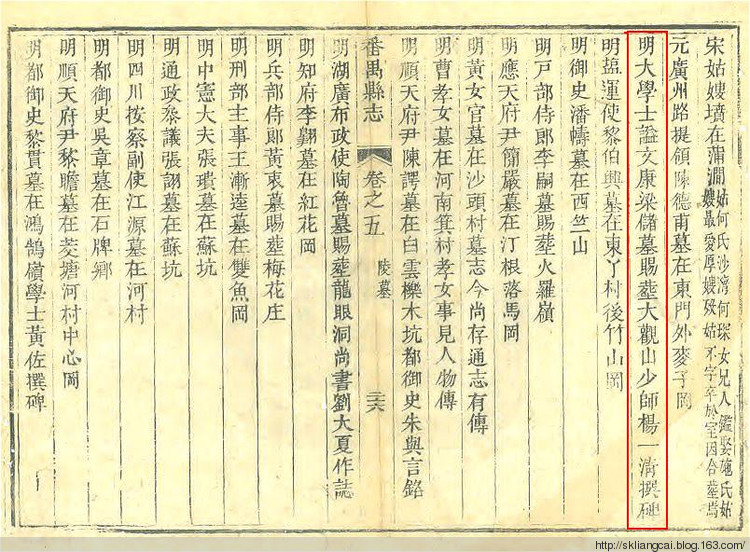 宋姑嫂墳在蒲澗姑何氏沙灣何琛女兄人灩娶鬼氏姑嫂最愛厚嫂歿姑不字卒於室因合塟焉
元廣州路提領陳德甫墓在東門外麥子岡
明大學士謚文康梁儲墓賜塟大觀山少師楊一清撰碑
明鹽運使黎伯興墓在東丫村後竹山岡
明御史潘𢝊墓在西竺山
明戸部侍郎李嗣墓賜塟火羅嶺
明應天府尹簡嚴墓在汀根落馬岡
明黃女官墓在沙頭村墓志今尚存通志有傳
明曹孝女墓在河南箕村孝女事見人物傳
明順天府尹陳諤墓在白雲櫟木坑都御史朱與言銘
番禺縣志 卷之五 陵墓 三六
明湖廣布政使陶魯墓賜塟龍眼洞尚書劉大夏作誌
明知府李翺墓在紅花岡
明兵部侍郎黃衷墓賜塟梅花庄
明刑部主事王漸逵墓在雙魚岡
明中憲大夫張璝墓在蘇坑
明通政參議張詡墓在蘇坑
明四川按察副使江源墓在河村
明都御史吳章墓在石牌鄉
明順天府尹黎瞻墓在菱塘河村中心岡
明都御史黎貫墓在鴻鵠嶺學士黃佐撰碑
http://skliangcai.blog.163.com/